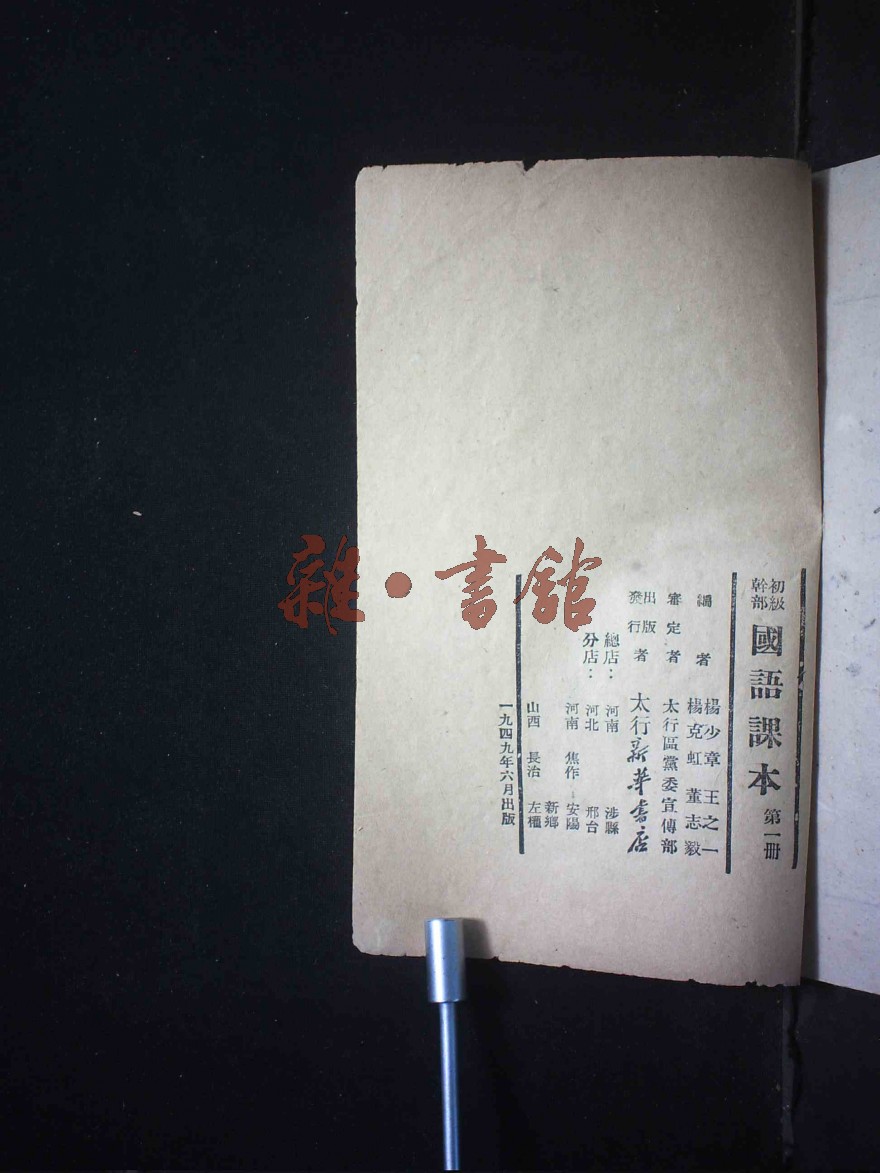 初級
幹部
國語課本 第一冊
編者
楊少章 王之一
楊克虹 董志毅
審定者 太行區黨委宣傳部
出版
發行者 太行新華書店
總店： 河南 涉縣
分店： 河北 邢台
河南 焦作 安陽
新鄉
山西 長治 左權
一九四九年六月出版
雜·書館